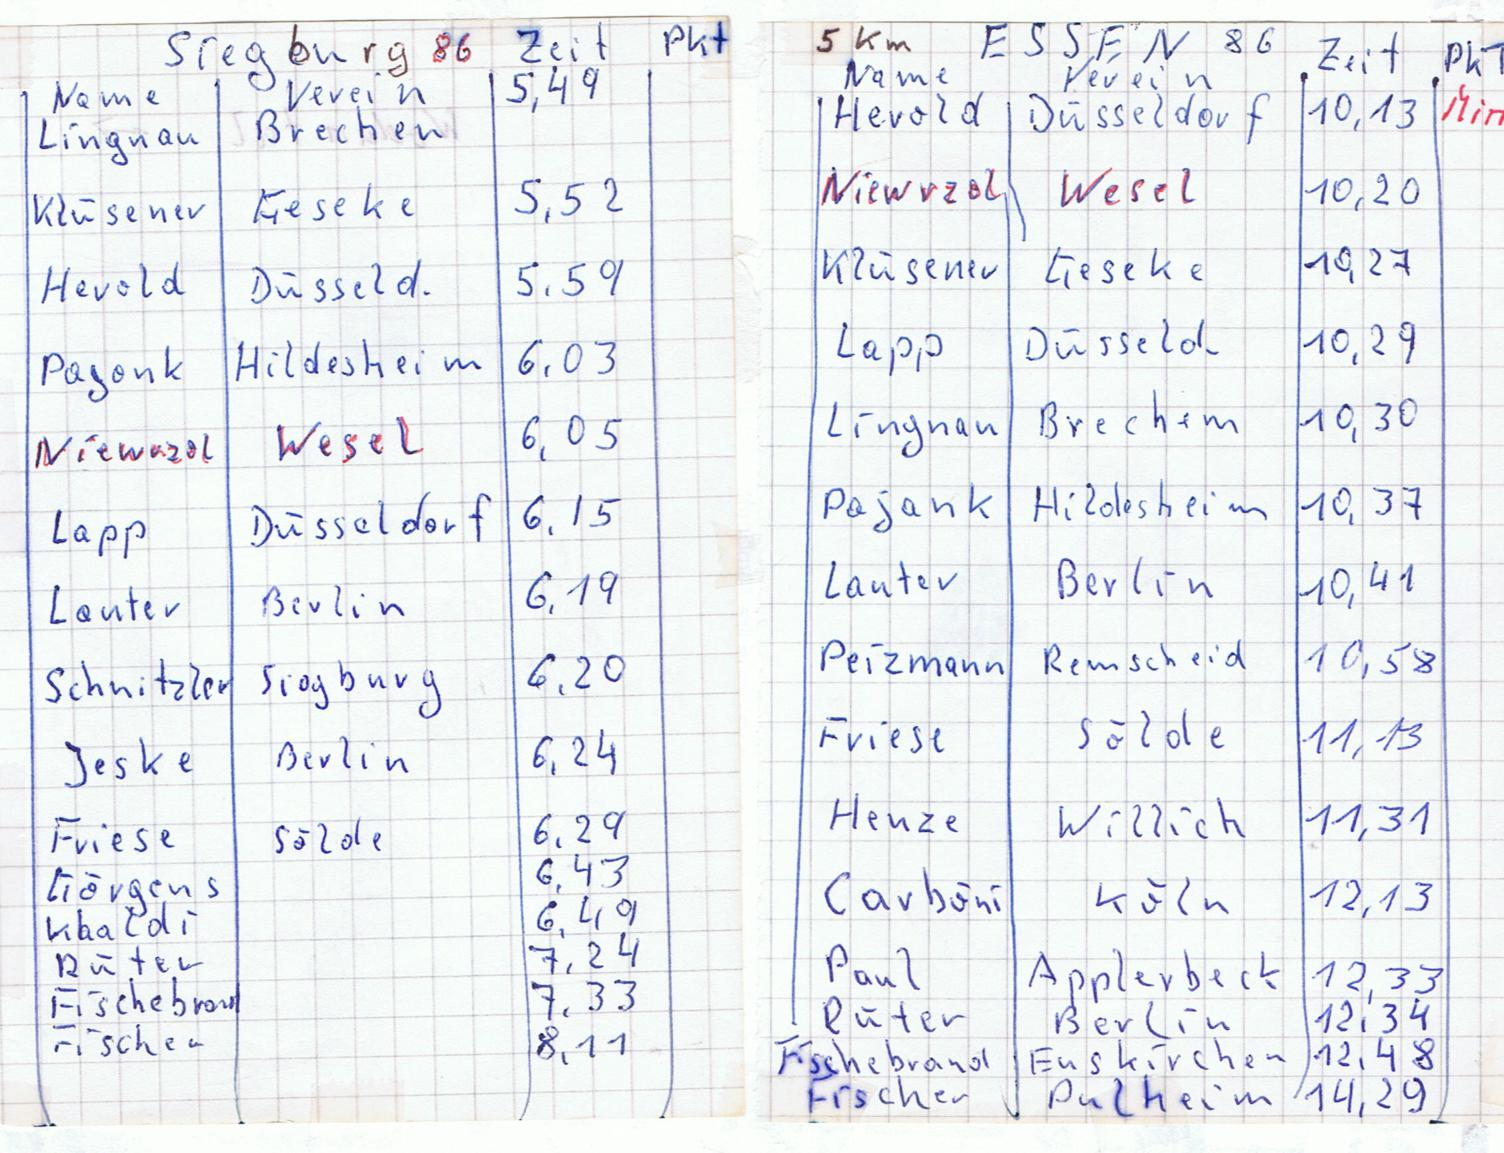 Siegburg 86 Zeit Pkt
Name Verein 5,49
Lingnau Brechen
Klüsener Geseke 5,52
Herold Düsseld. 5.59
Pajonk Hildesheim 6,03
Niewrzol Wesel 6,05
Lapp Düsseldorf 6,15
Lauter Berlin 6,19
Schnitzler Siegburg 6,20
Jeske Berlin 6,24
Friese Sölde 6,29
Görgens 6,43
Khaldi 6,49
Rüter 7,24
Fischebrand 7,33
Fischer 8,11
5 Km ESSEN 86 Zeit Pkt
Name Verein
Herold Düsseldorf 10,13 Min
Niewrzol Wesel 10,20
Klüsener Geseke 10,27
Lapp Düsseld. 10,29
Lingnau Brechem 10,30
Pajank Hildesheim 10,37
Lauter Berlin 10,41
Peizmann Remscheid 10,58
Friese Sölde 11,13
Henze Willich 11,31
Carboni Köln 12,13
Paul Applerbeck 12,33
Rüter Berlin 12,34
Fischebrand Euskirchen 12,48
Fischer Pulheim 14,29